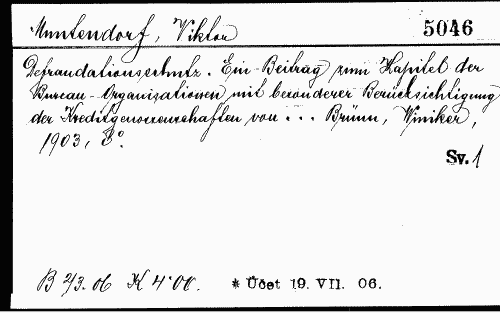 Muntendorf, Viktor 5046
Defraudationsschutz. Ein Beitrag zum Kapitel der
Bureau-Organisationen mit besonderer Berücksichtigung
der Kreditgenossenschaften von ... Brünn, Winiker,
1903, 8°.
Sv. 1
B 2/3. 06 K 4·00. * Účet 19. VII. 06.